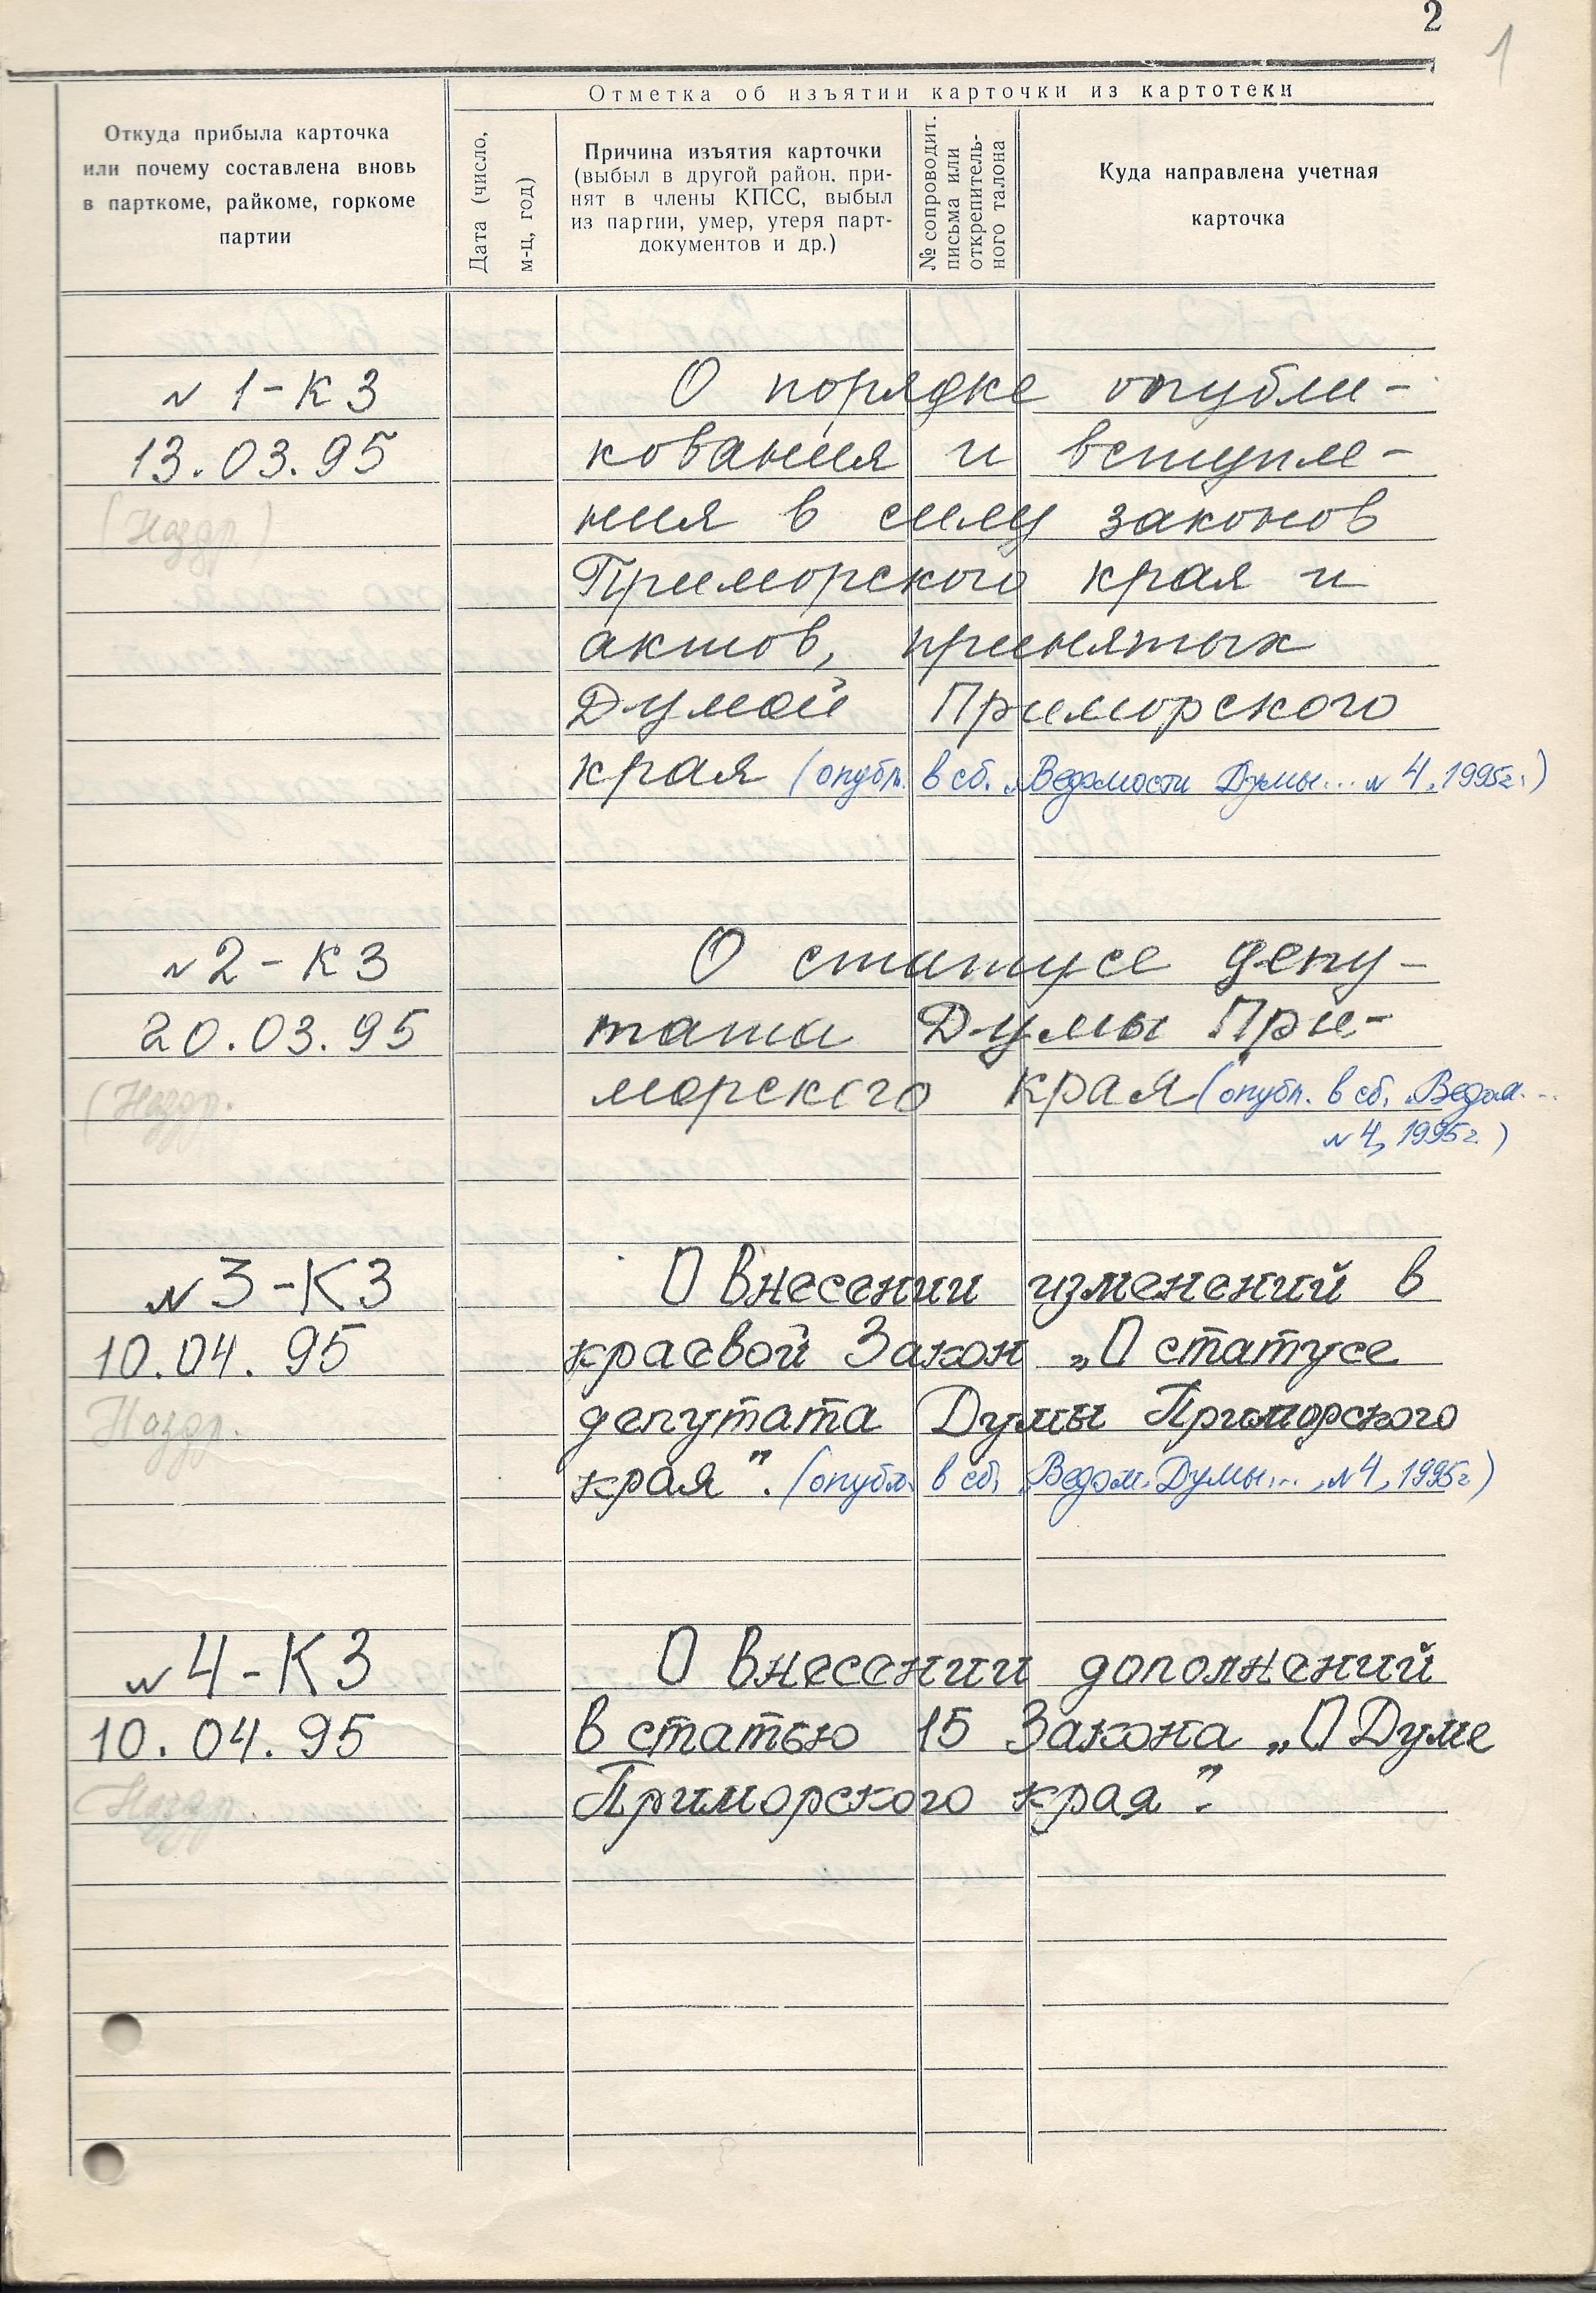 2
1
Отметка об изъятии карточки из картотеки
Откуда прибыла карточка
или почему составлена вновь
в парткоме, райкоме, горкоме
партии
Дата (число,
м-ц, год)
Причина изъятия карточки
(выбыл в другой район, при-
нят в члены КПСС, выбыл
из партии, умер, утеря парт-
документов и др.)
№ сопроводит.
письма или
открепитель-
ного талона
Куда направлена учетная
карточка
N 1-КЗ
О порядке опубли-
13.03.95
кования и вступле-
(Наздр.)
ния в силу законов
Приморского края и
актов, принятых
Думой Приморского
края (опубл. в сб. „Ведомости Думы... N 4, 1995г.)
N 2-КЗ
О статусе депу-
20.03.95
тата Думы При-
(Наздр.
морского края (опубл. в сб. „Ведом...
N 4, 1995г.)
N 3-КЗ
О внесении изменений в
10.04.95
краевой Закон „О статусе
Наздр.
депутата Думы Приморского
края". (опубл. в сб. Ведом. Думы..., N 4, 1995г)
N 4-КЗ
О внесении дополнений
10.04.95
в статью 15 Закона „О Думе
Наздр.
Приморского края".